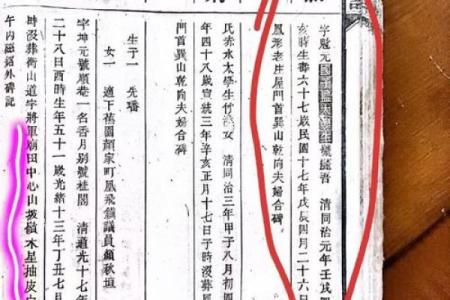 字魁元國子監太學生號吾 清同治元年壬戌
亥時生壽六十七歲民國十七年戊辰四月二十六日
鳳形老庄屋門首巽山乾向夫婦合碑
氏赤水太學生竹女 清同治三年甲子八月初
年四十八歲宣統三年辛亥正月十七日子時沒葬
門首巽山乾向夫婦合碑
生子一 先璠
女一 適下舊園顏家町鳳飛鎮議員顏秋垣
字坤元號順巷一名香月別號桂閣 清道光十七
二十八日酉時生年五十一歲光緒十三年丁丑七月
坤沒葬衡山道字將軍廟田中心山坂嶺木星抽皮
午內磁誌外碑記